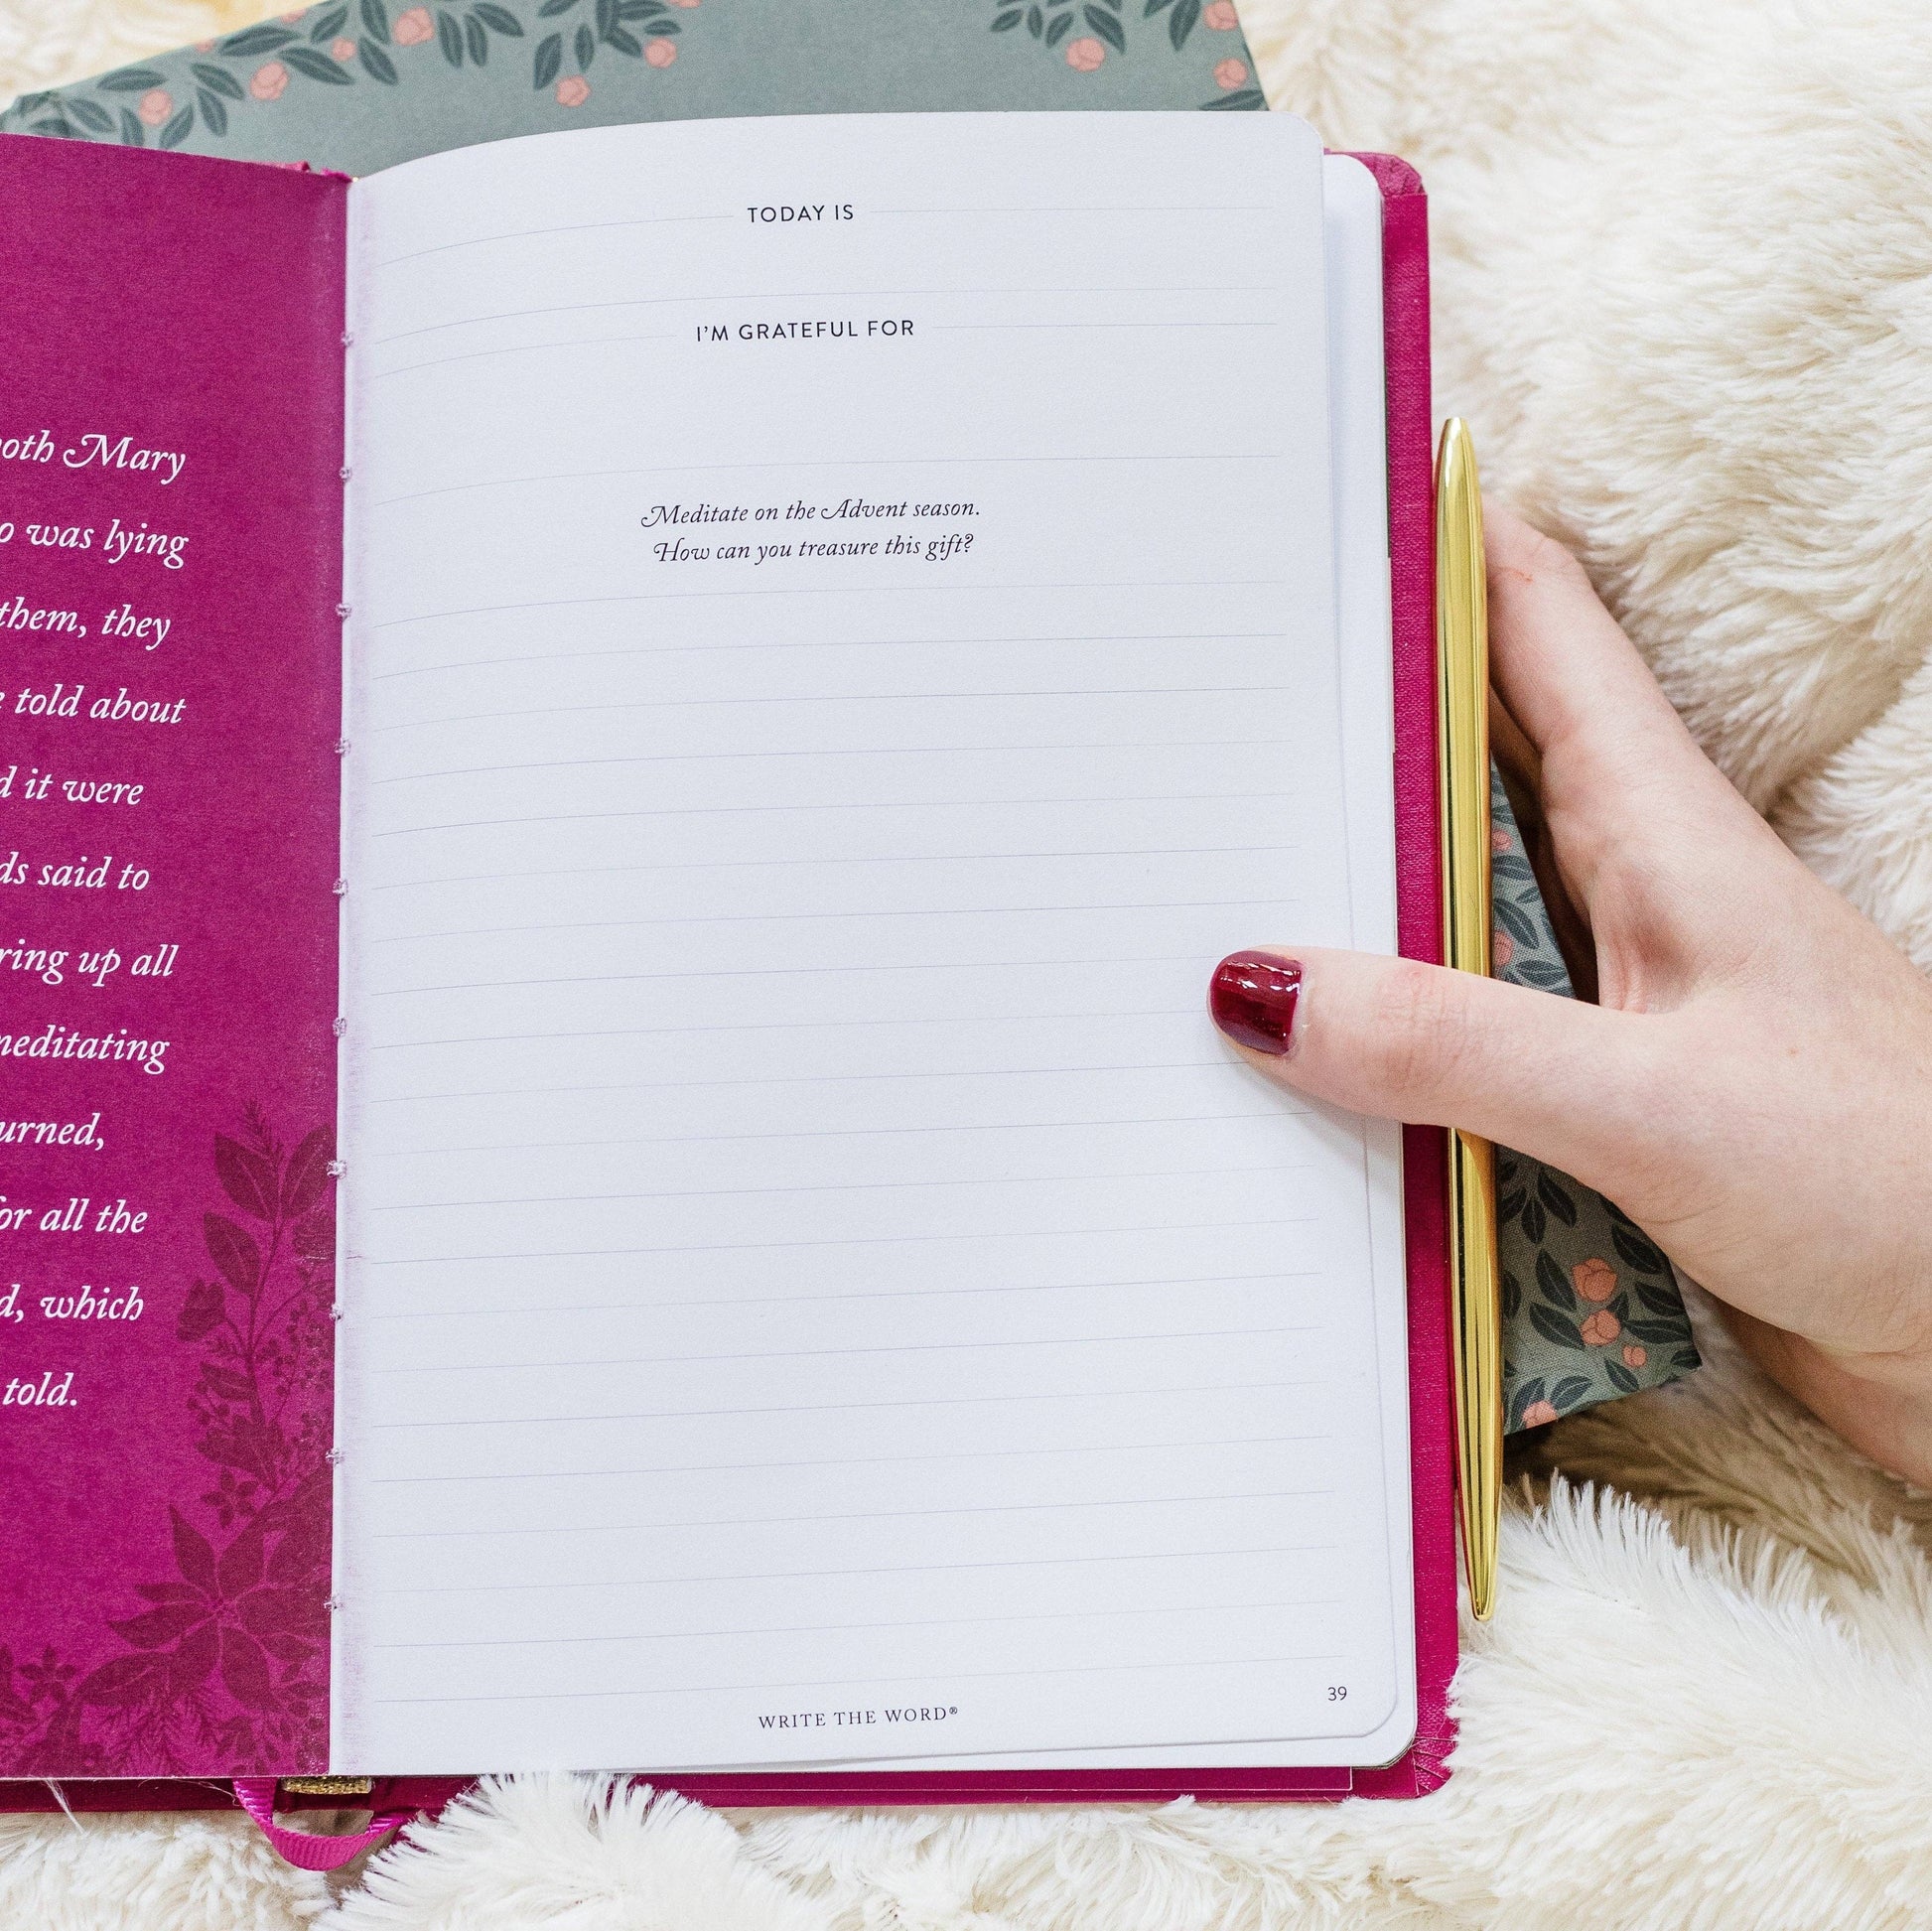 Mary
was lying
them, they
told about
it were
said to
up all
for all the
which
told.
TODAY IS
I'M GRATEFUL FOR
Meditate on the Advent season.
How can you treasure this gift?
WRITE THE WORD®
39